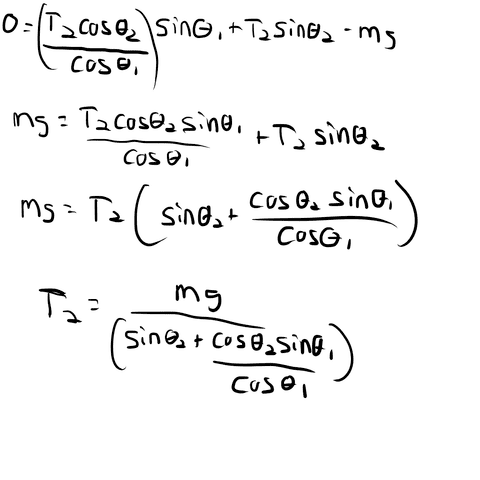 0 = (T₂cosθ₂ / cosθ₁) sinθ₁ + T₂sinθ₂ - mg
mg = T₂cosθ₂sinθ₁ / cosθ₁ + T₂ sinθ₂
mg = T₂ (sinθ₂ + cosθ₂ sinθ₁ / cosθ₁)
T₂ = mg / (sinθ₂ + cosθ₂sinθ₁ / cosθ₁)